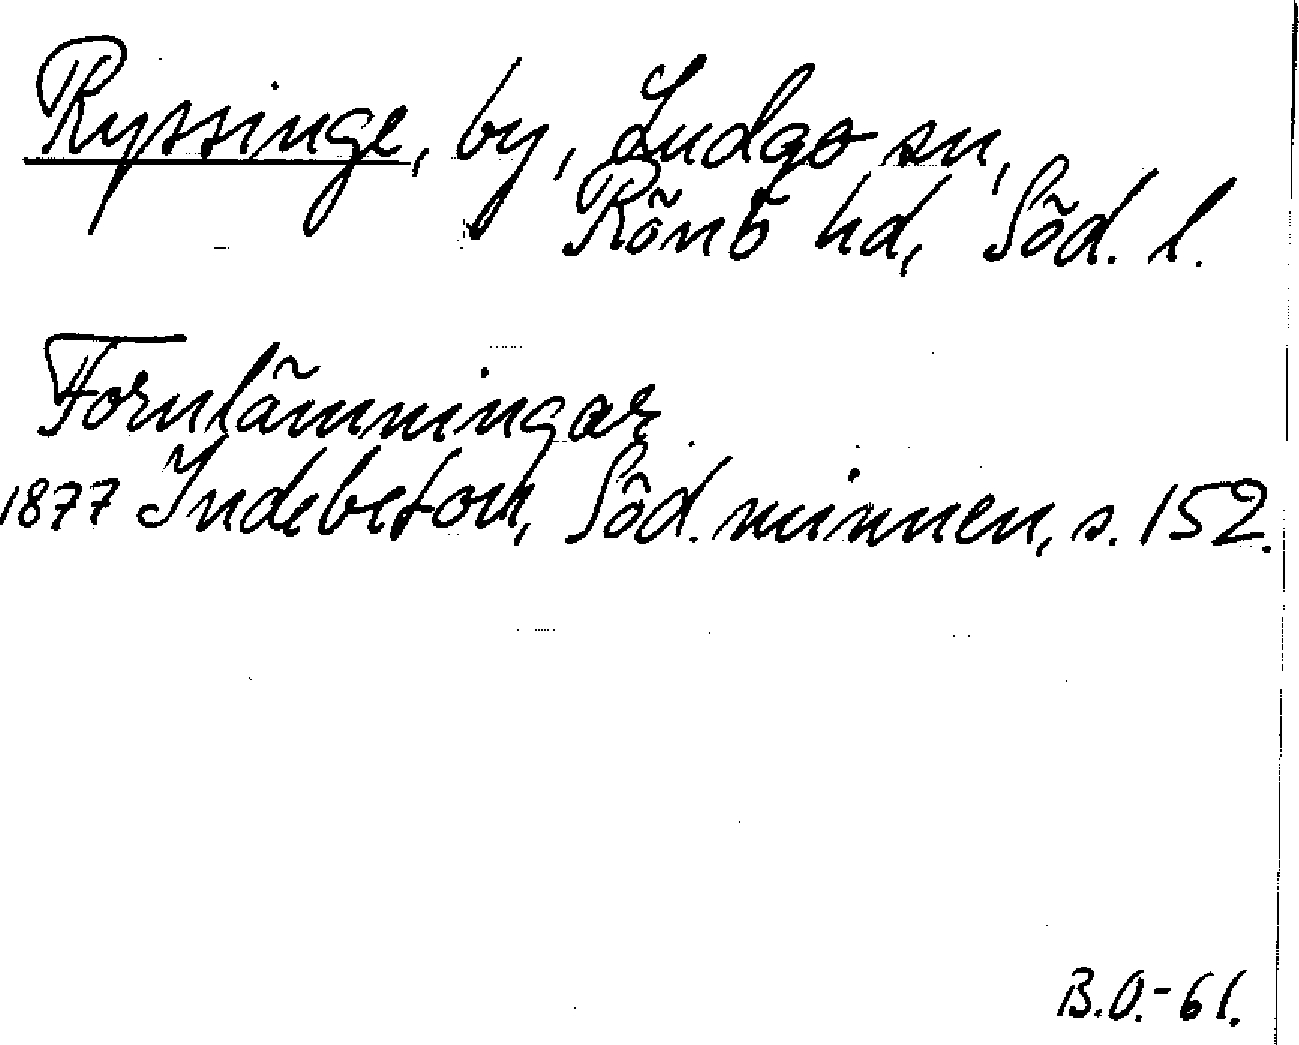 Ryssinge, by, Ludgo sn,
Rönö hd, Söd. l.
Fornlämningar
1877 Indebetou, Söd. minnen, s. 152.
B.O.-61.